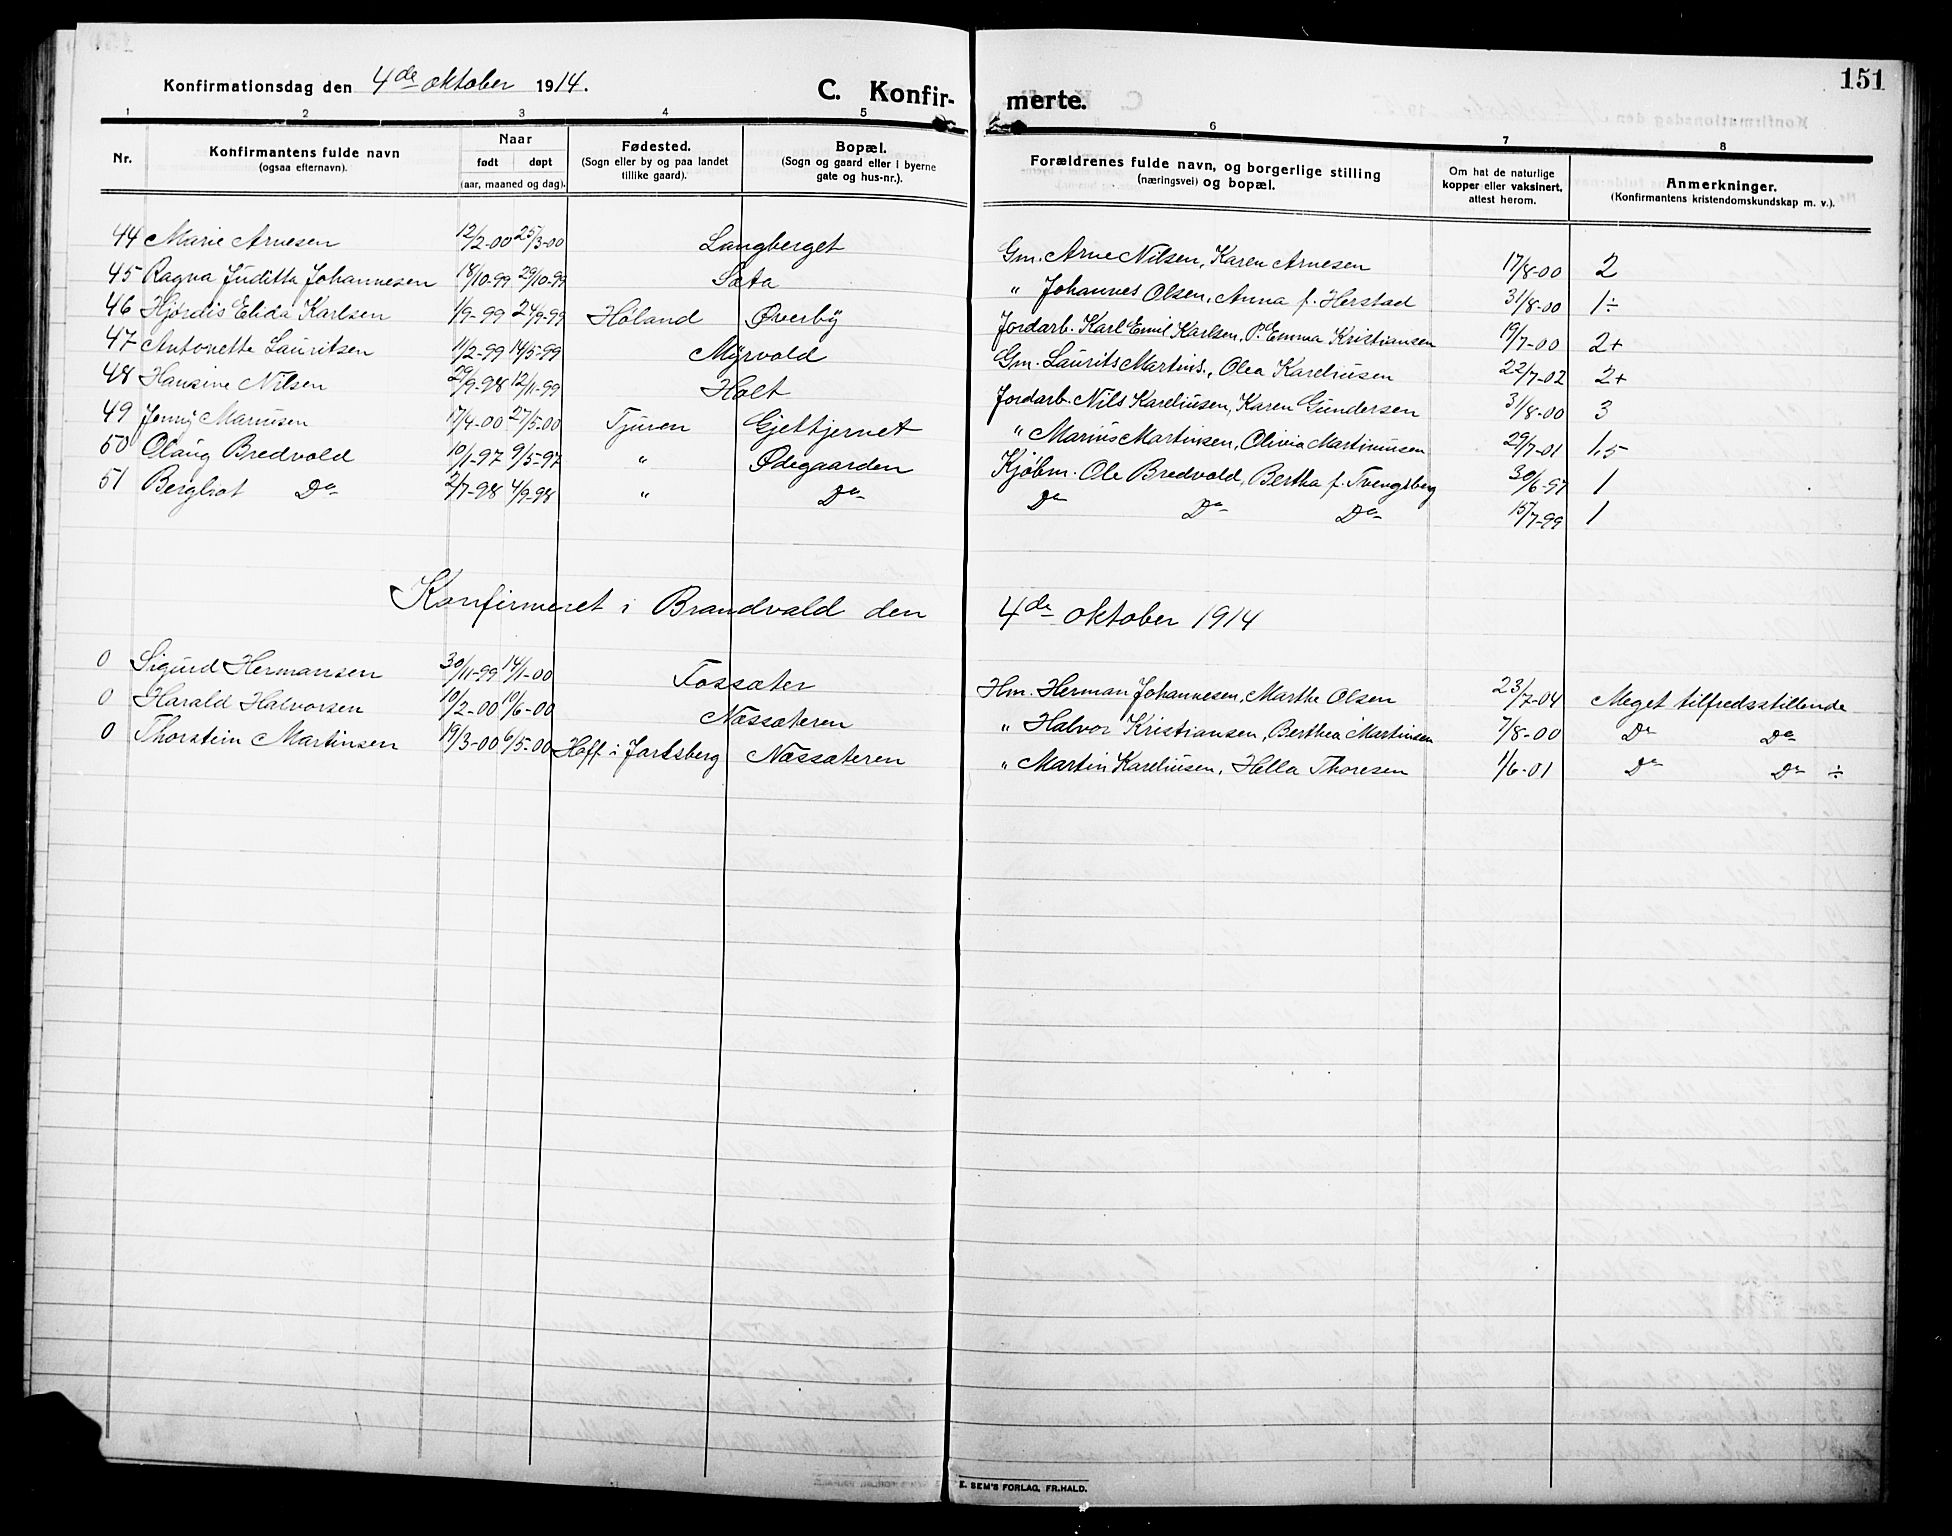 151
Konfirmationsdag den 4de oktober 1914.
C. Konfir- merte.
1 2 3 4 5 6 7 8
Nr. Konfirmantens fulde navn (ogsaa efternavn). Naar født døpt (aar, maaned og dag). Fødested. (Sogn eller by og paa landet tillike gaard). Bopæl. (Sogn og gaard eller i byerne gate og hus-nr.). Forældrenes fulde navn, og borgerlige stilling (næringsvei) og bopæl. Om hat de naturlige kopper eller vaksinert, attest herom. Anmerkninger. (Konfirmantens kristendomskundskap m. v.).
44 Marie Arnesen 12/2-00 25/3-00 Langberget Gm. Arne Nilsen, Karen Arnesen 17/8-00 2
45 Ragna Juditta Johannesen 18/10-99 29/10-99 Sæta " Johannes Olsen, Anna f. Herstad 31/8-00 1÷
46 Hjørdis Elida Karlsen 1/9-99 24/9-99 Høland Øverby Jordarb. Karl Emil Karlsen, P. Emma Kristiansen 19/7-00 2+
47 Antonette Lauritsen 11/2-99 14/5-99 Myrvold Gm. Laurits Martins., Olea Kareliusen 22/7-02 2+
48 Hansine Nilsen 29/9-98 12/11-99 Holt Jordarb. Nils Kareliusen, Karen Gundersen 31/8-00 3
49 Jenny Mariusen 17/4-00 27/5-00 Tjuren Gjettjernet " Marius Martinsen, Olivia Martinusen 29/7-01 1,5
50 Olaug Bredvold 10/1-97 9/5-97 " Ødegaarden Kjøbm. Ole Bredvold, Bertha f. Tvengsberg 30/6-97 1
51 Bergliot Do 2/7-98 4/9-98 " Do Do Do Do 15/7-99 1
Konfirmeret i Brandvald den 4de oktober 1914
0 Sigurd Hermansen 30/11-99 14/1-00 Fossæter Hm. Herman Johannesen, Marthe Olsen 23/7-04 Meget tilfredsstillende
0 Harald Halvorsen 10/2-00 10/6-00 Næssæteren " Halvor Kristiansen, Berthea Martinsen 7/8-00 Do Do
0 Thorstein Martinsen 19/3-00 6/5-00 Hoff i Jarlsberg Næssæteren " Martin Kareliusen, Hella Thoresen 1/6-01 Do Do ÷
E. SEM'S FORLAG, FR.HALD.